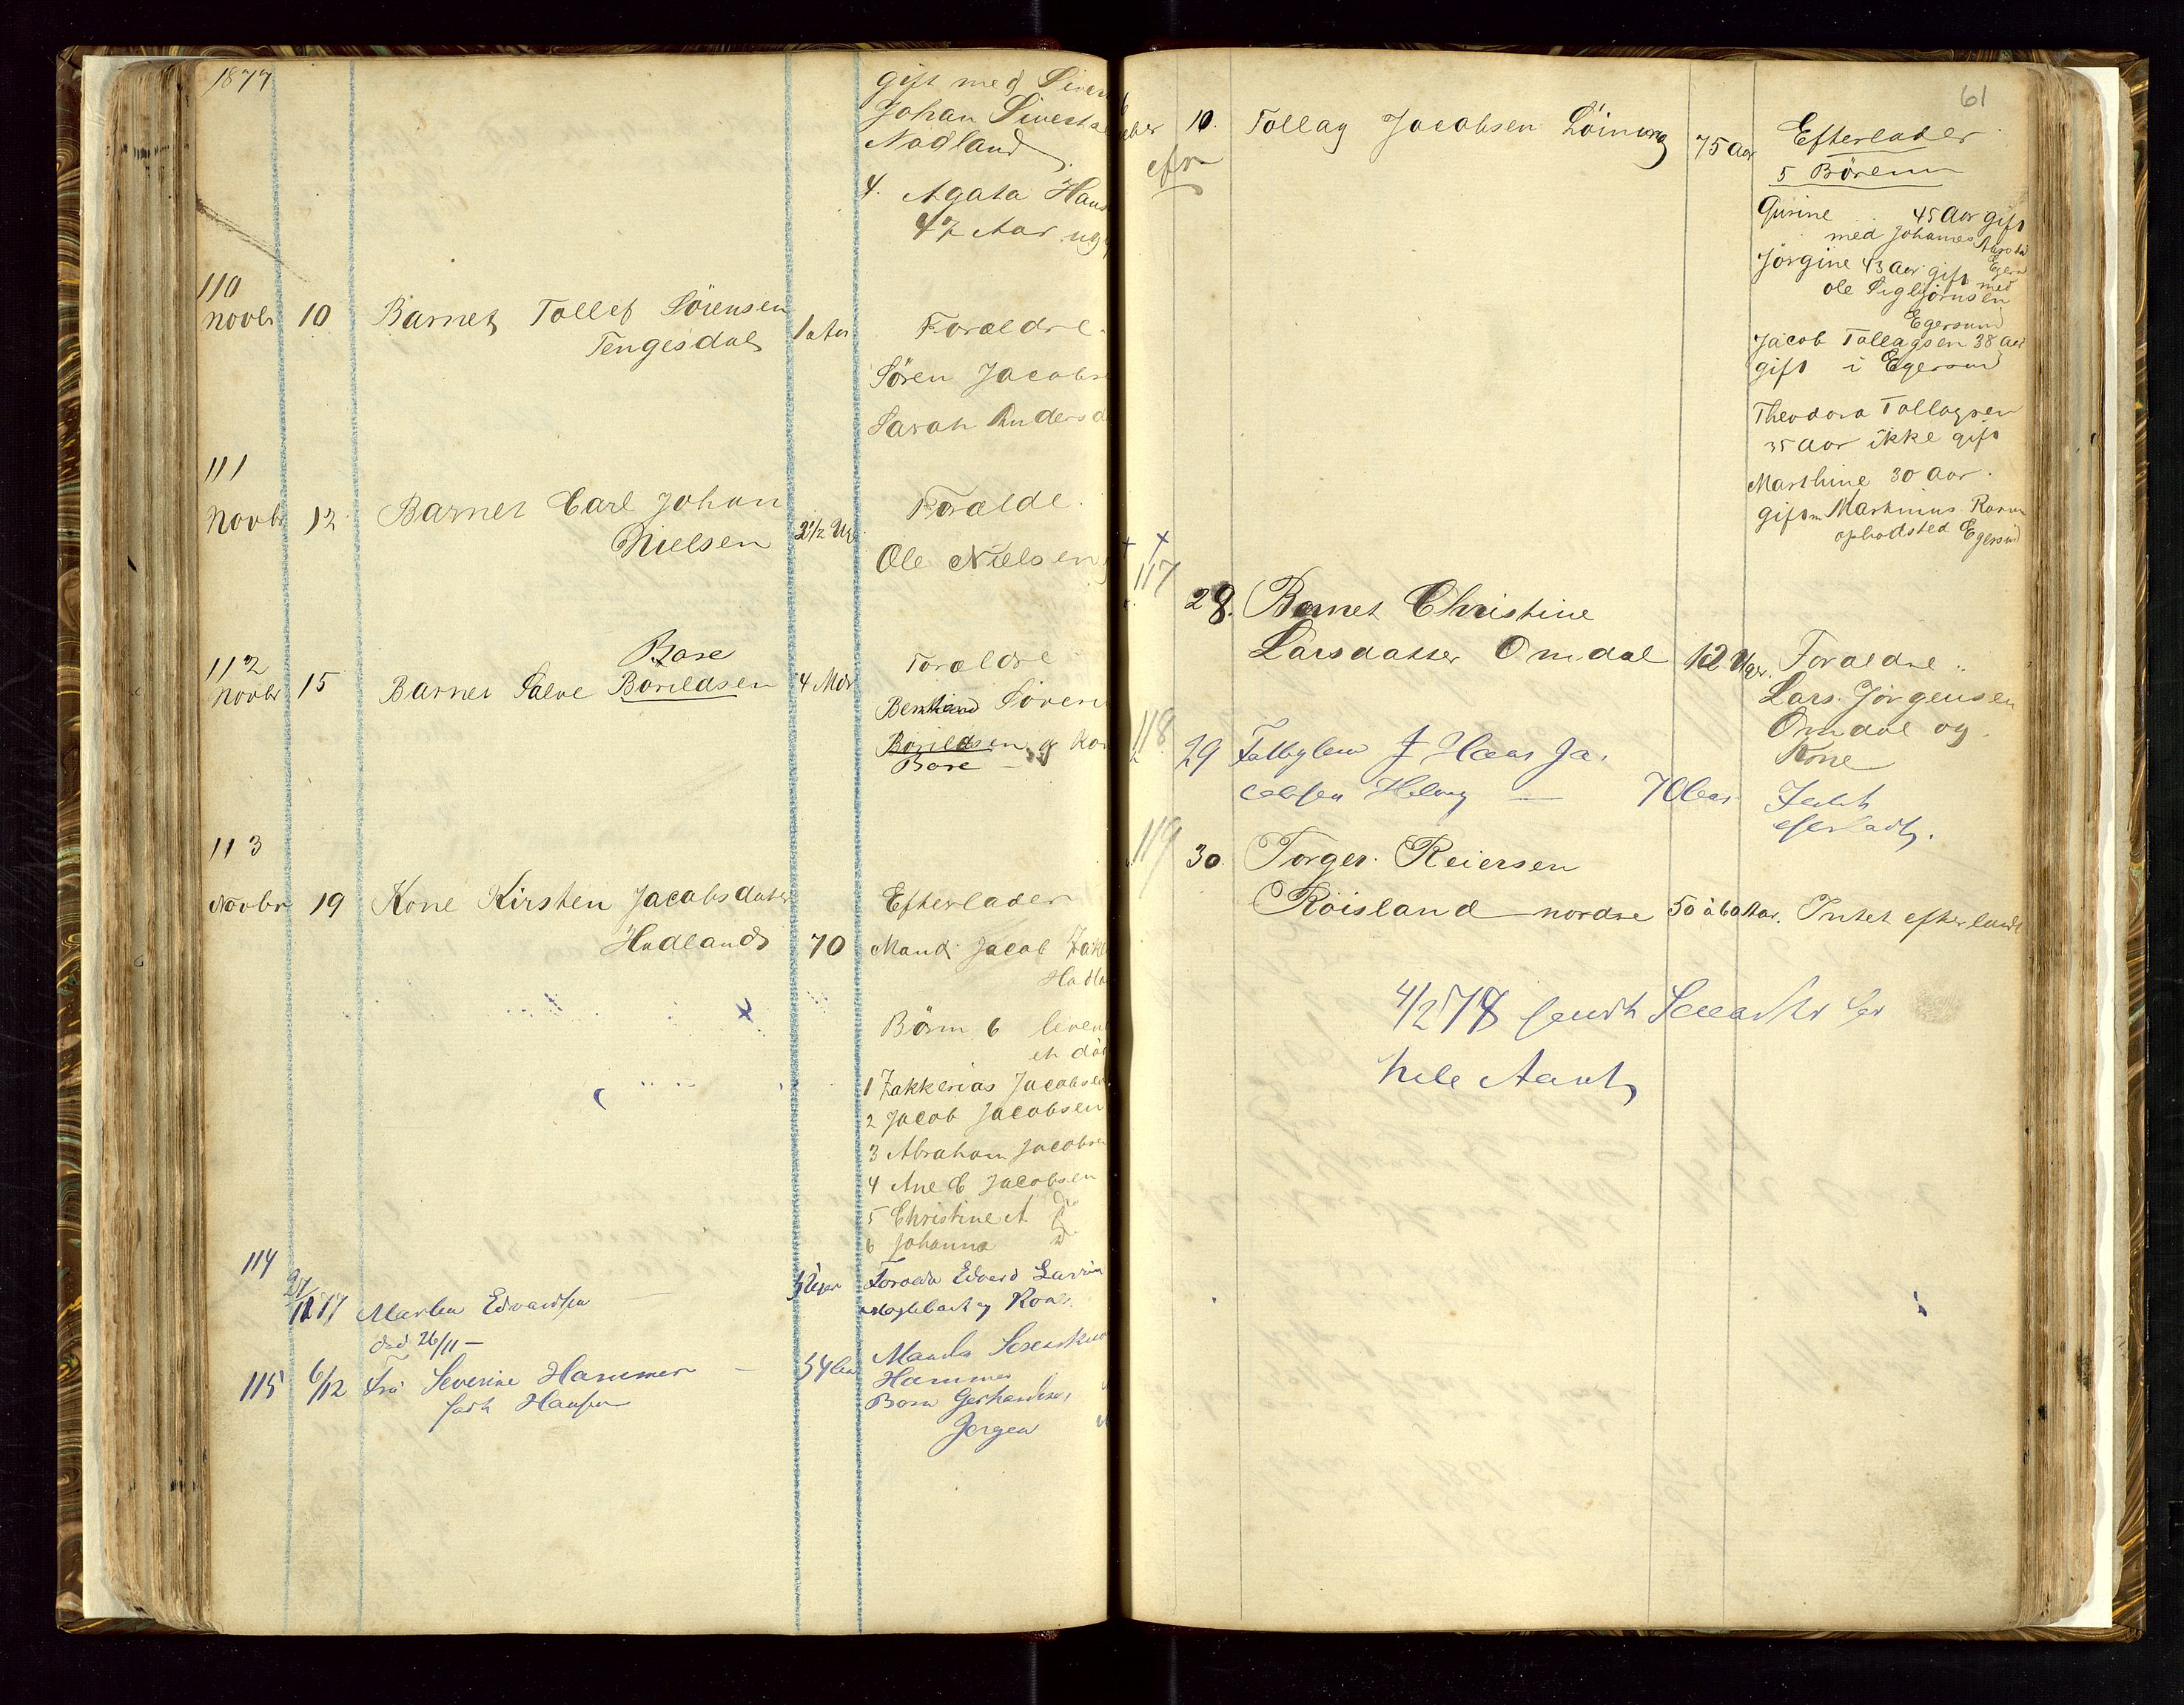 1877
gift med Sivert
Johan Siverts
Nodland
4. Agata Hans
47 Aar ug
110
Novbr 10 Barnet Tollef Sörensen
Tengesdal 1 Aar
Foraeldre
Sören Jacobse
Sarah Anders
111
Novbr 12 Barnet Carl Johan
Nielsen 3½ Ug
Foraelde
Ole Nielsen
112
Novbr 15 Barnet Salve Borildsen 4 Mdr
Bore
Foraeldre
Sören
Borildsen og Kon
Bore
113
Novbr 19 Kone Kirsten Jacobsdatter
Hadland 70
Efterlader
Mand Jacob Zak
Hadla
Börn 6 leven
et dö
1 Zakkerias Jacobsen
2 Jacob Jacobsen
3 Abraham Jacobsen
4 Ane C Jacobsen
5 Christine A do
6 Johanna do
114
27/11 77 Edvardsen
död 26/11 –
Edvard
og Kone
115 6/12 Severine Hammer
födt Hansen
Hammer
Born
Jörgen
61
10. Tollag Jacobsen Löining 75 Aar
Efterlader
5 Börenn
Gurine 45 Aar gift
med Johannes
Jörgine 43 Aar gift med
Ole Sigbjörnsen
Egersund
Jacob Tollagsen 38 Aar
gift i Egersund
Theodora Tollagsen
35 Aar ikke gift
Marthine 30 Aar
gift m Martinius
opholdsted Egersund
117
28. Barnet Christine
Larsdatter Omdal 12 Uger.
Foraeldre
Lars Jörgensen
Omdal og
Kone
118
29 Fattiglem Ja-
cobsen 70 Aar
Intet
efterladt.
119
30. Torger Reiersen
Röisland nordre 50 à 60 Aar. Intet efterladt
4/2 78 sendt
hele Aaret